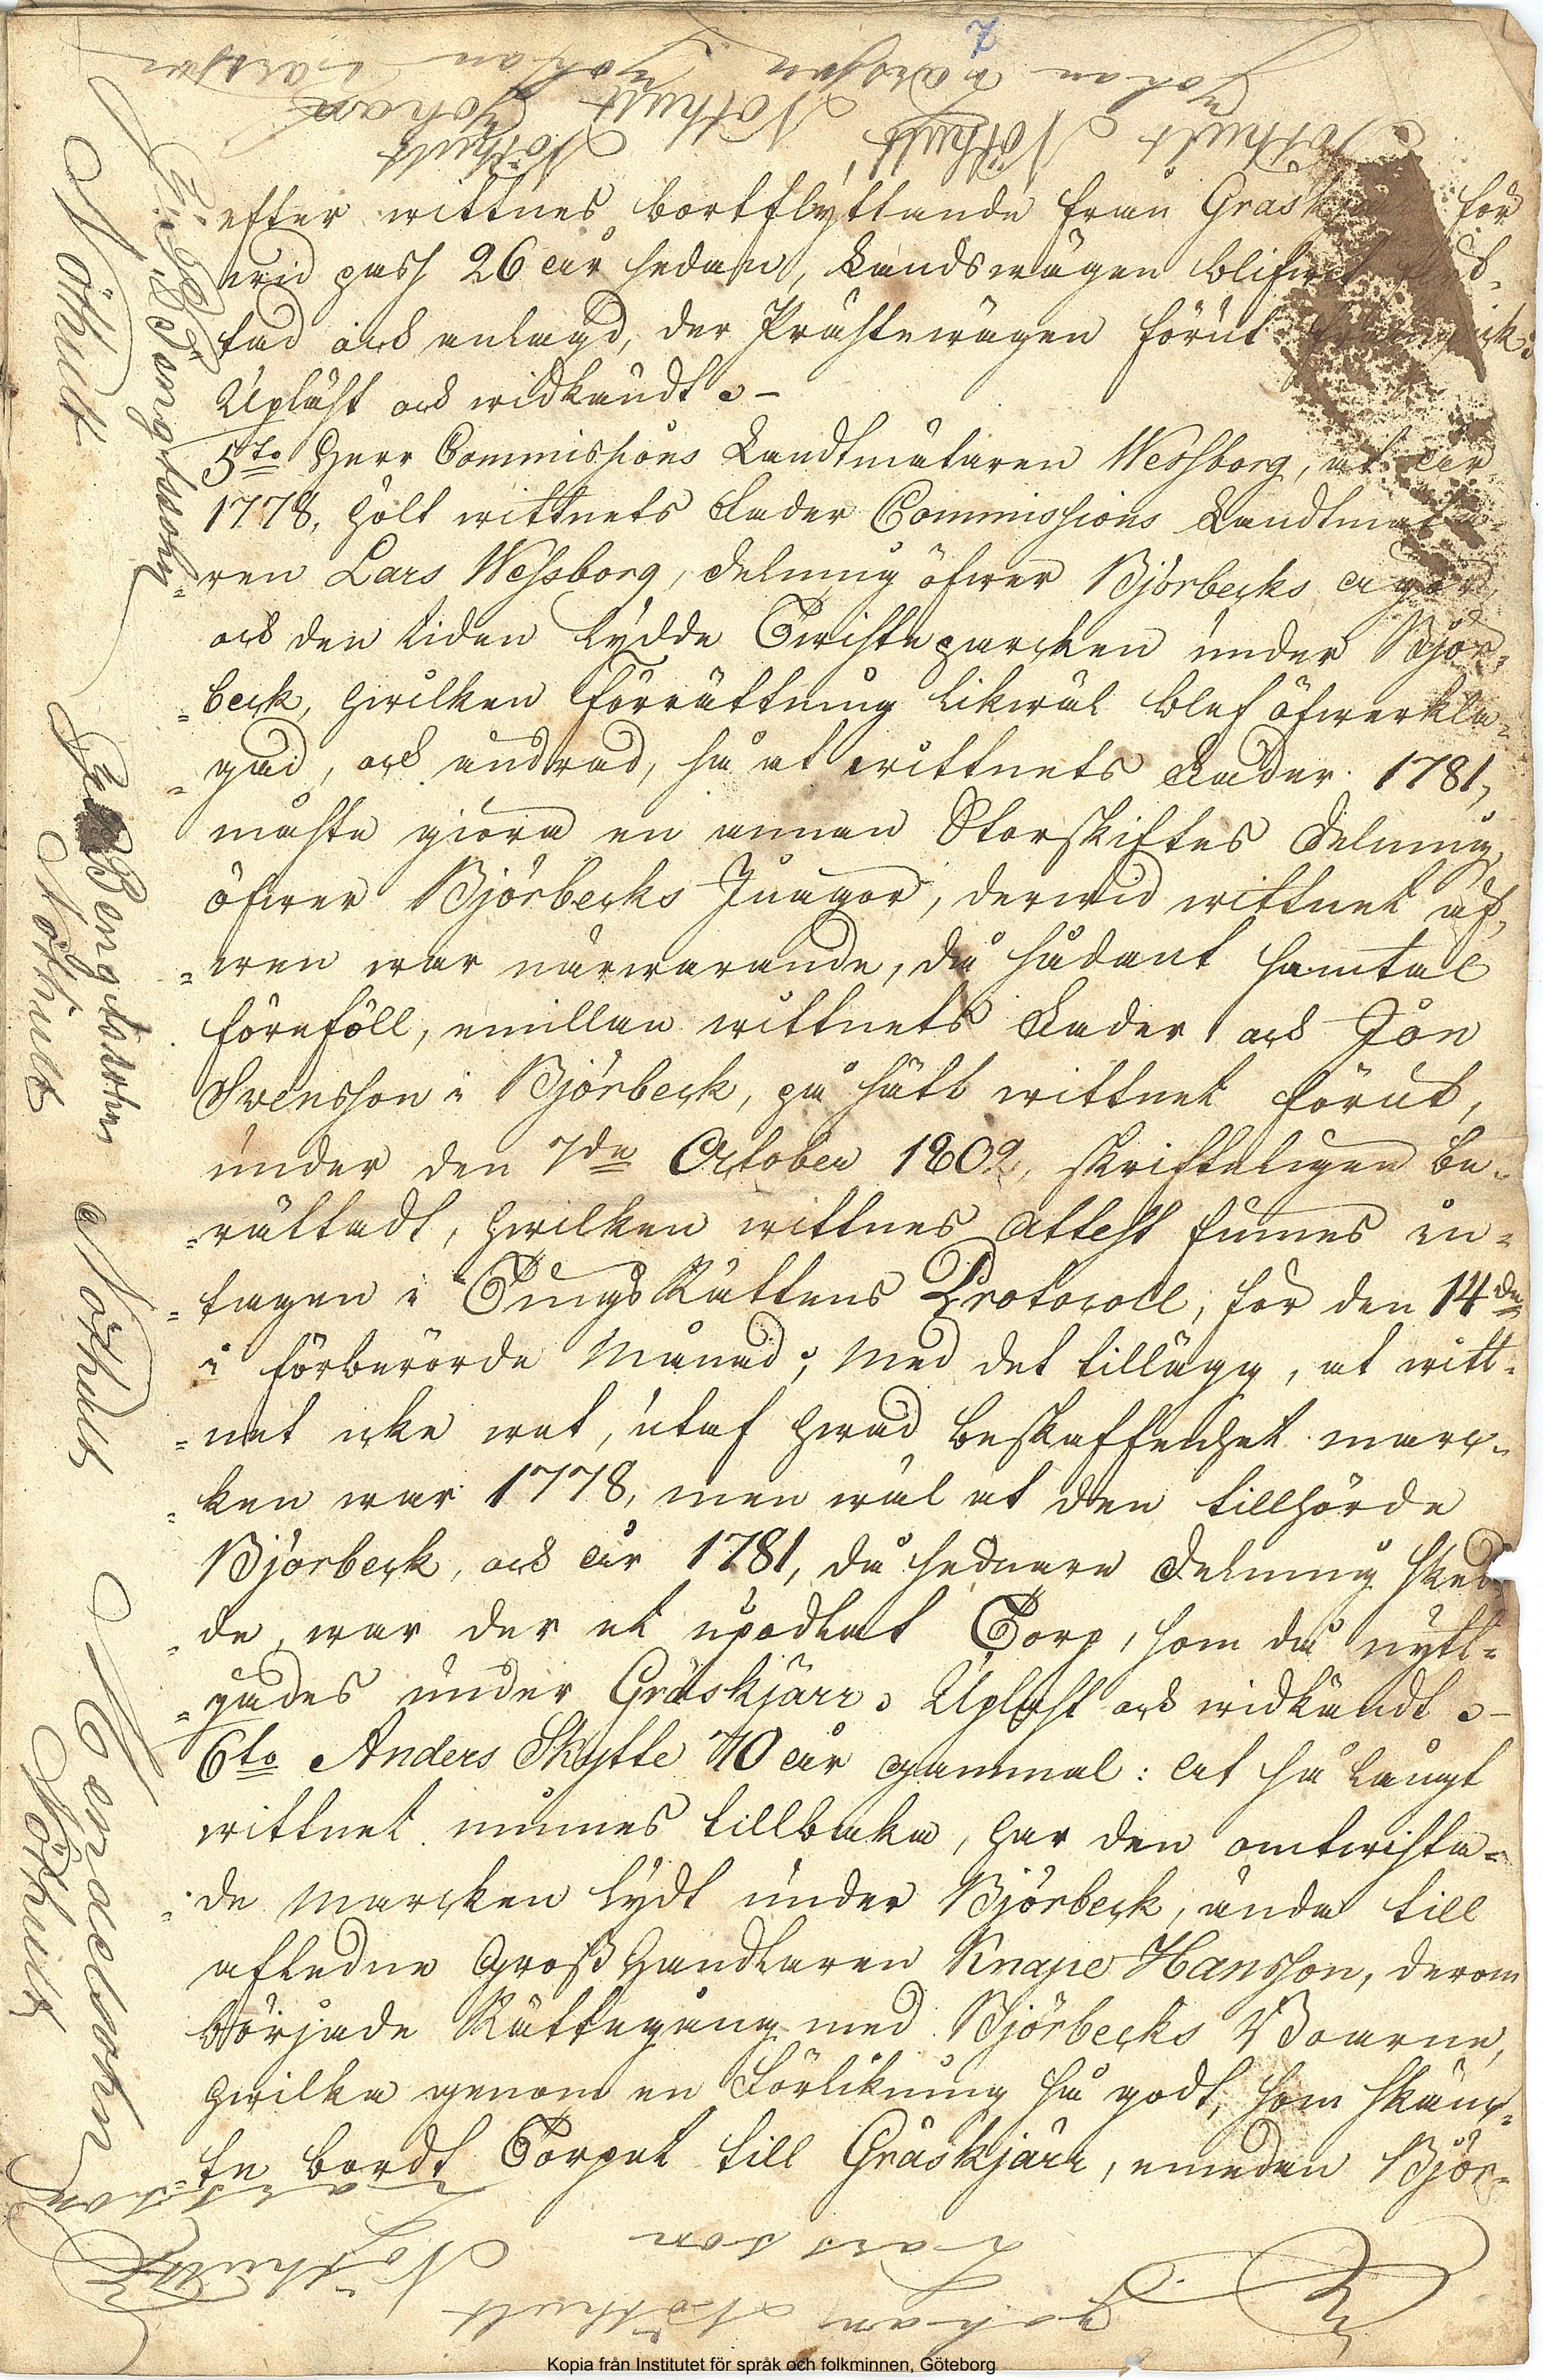 7
Johan Larsson Johan Larsson
Nöthult Nöthult Nöthult Johan
Nöthult
efter wittnes bortflyttande från Gräskjärr för
wid pass 26 år sedan, Landswägen blifwit
tad och anlagd, der Prästewägen förut framgick:
Upläst och widkändt. –
5to Herr Commissions Landtmätaren Wessborg, at år
1778, hölt wittnets Fader Commissions Landtmäta-
ren Lars Wessborg, delning öfwer Björbecks ägor,
och den tiden lydde Twisteparcken under Björ-
beck, hwilken förrättning likwäl blef öfwerkla-
gad, och ändrad, så at wittnets Fader 1781,
måste giöra en annan Storskiftes delning
öfwer Björbecks Inägor, derwid wittnet äf-
wen war närwarande, då sådant samtal
föreföll, emillan wittnets Fader och Jon
Svensson i Björbeck, på sätt wittnet förut,
under den 7de October 1802, skrifteligen be-
rättadt, hwilken wittnes attest finnes in-
tagen i TingsRättens Protocoll, för den 14de
i förberörde Månad; med det tillägg, at witt-
net icke wet, utaf hwad beskaffenhet marc-
ken war 1778, men wäl at den tillhörde
Björbeck, och år 1781, då sednare delning sked-
de, war der et upodlat Torp, som då nytt-
jades under Gräskjärr: Upläst och widkändt. –
6to Anders Skytte 70 år gammal: at så långt
wittnet minnes tillbaka, har den omtwista-
de marcken lydt under Björbeck, ända till
afledne Grosshandlaren Knape Hansson, derom
började Rättegång med Björbecks Boarne,
hwilka genom en Förlikning så godt, som skänk-
te bordt Torpet till Gräskjärr, emedan Björ-
Nöthult
Bengtsson
Nöthult
Bengtsson
Nöthult
Nöthult
Larsson
Nöthult
Larsson
Johan Nöthult
Kopia från Institutet för språk och folkminnen, Göteborg